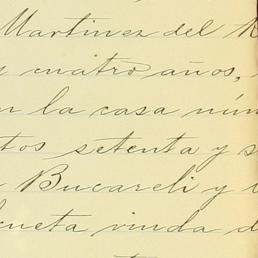 Martinez del
y cuatro años,
en la casa núm
tos setenta y s
Bucareli y
viuda d